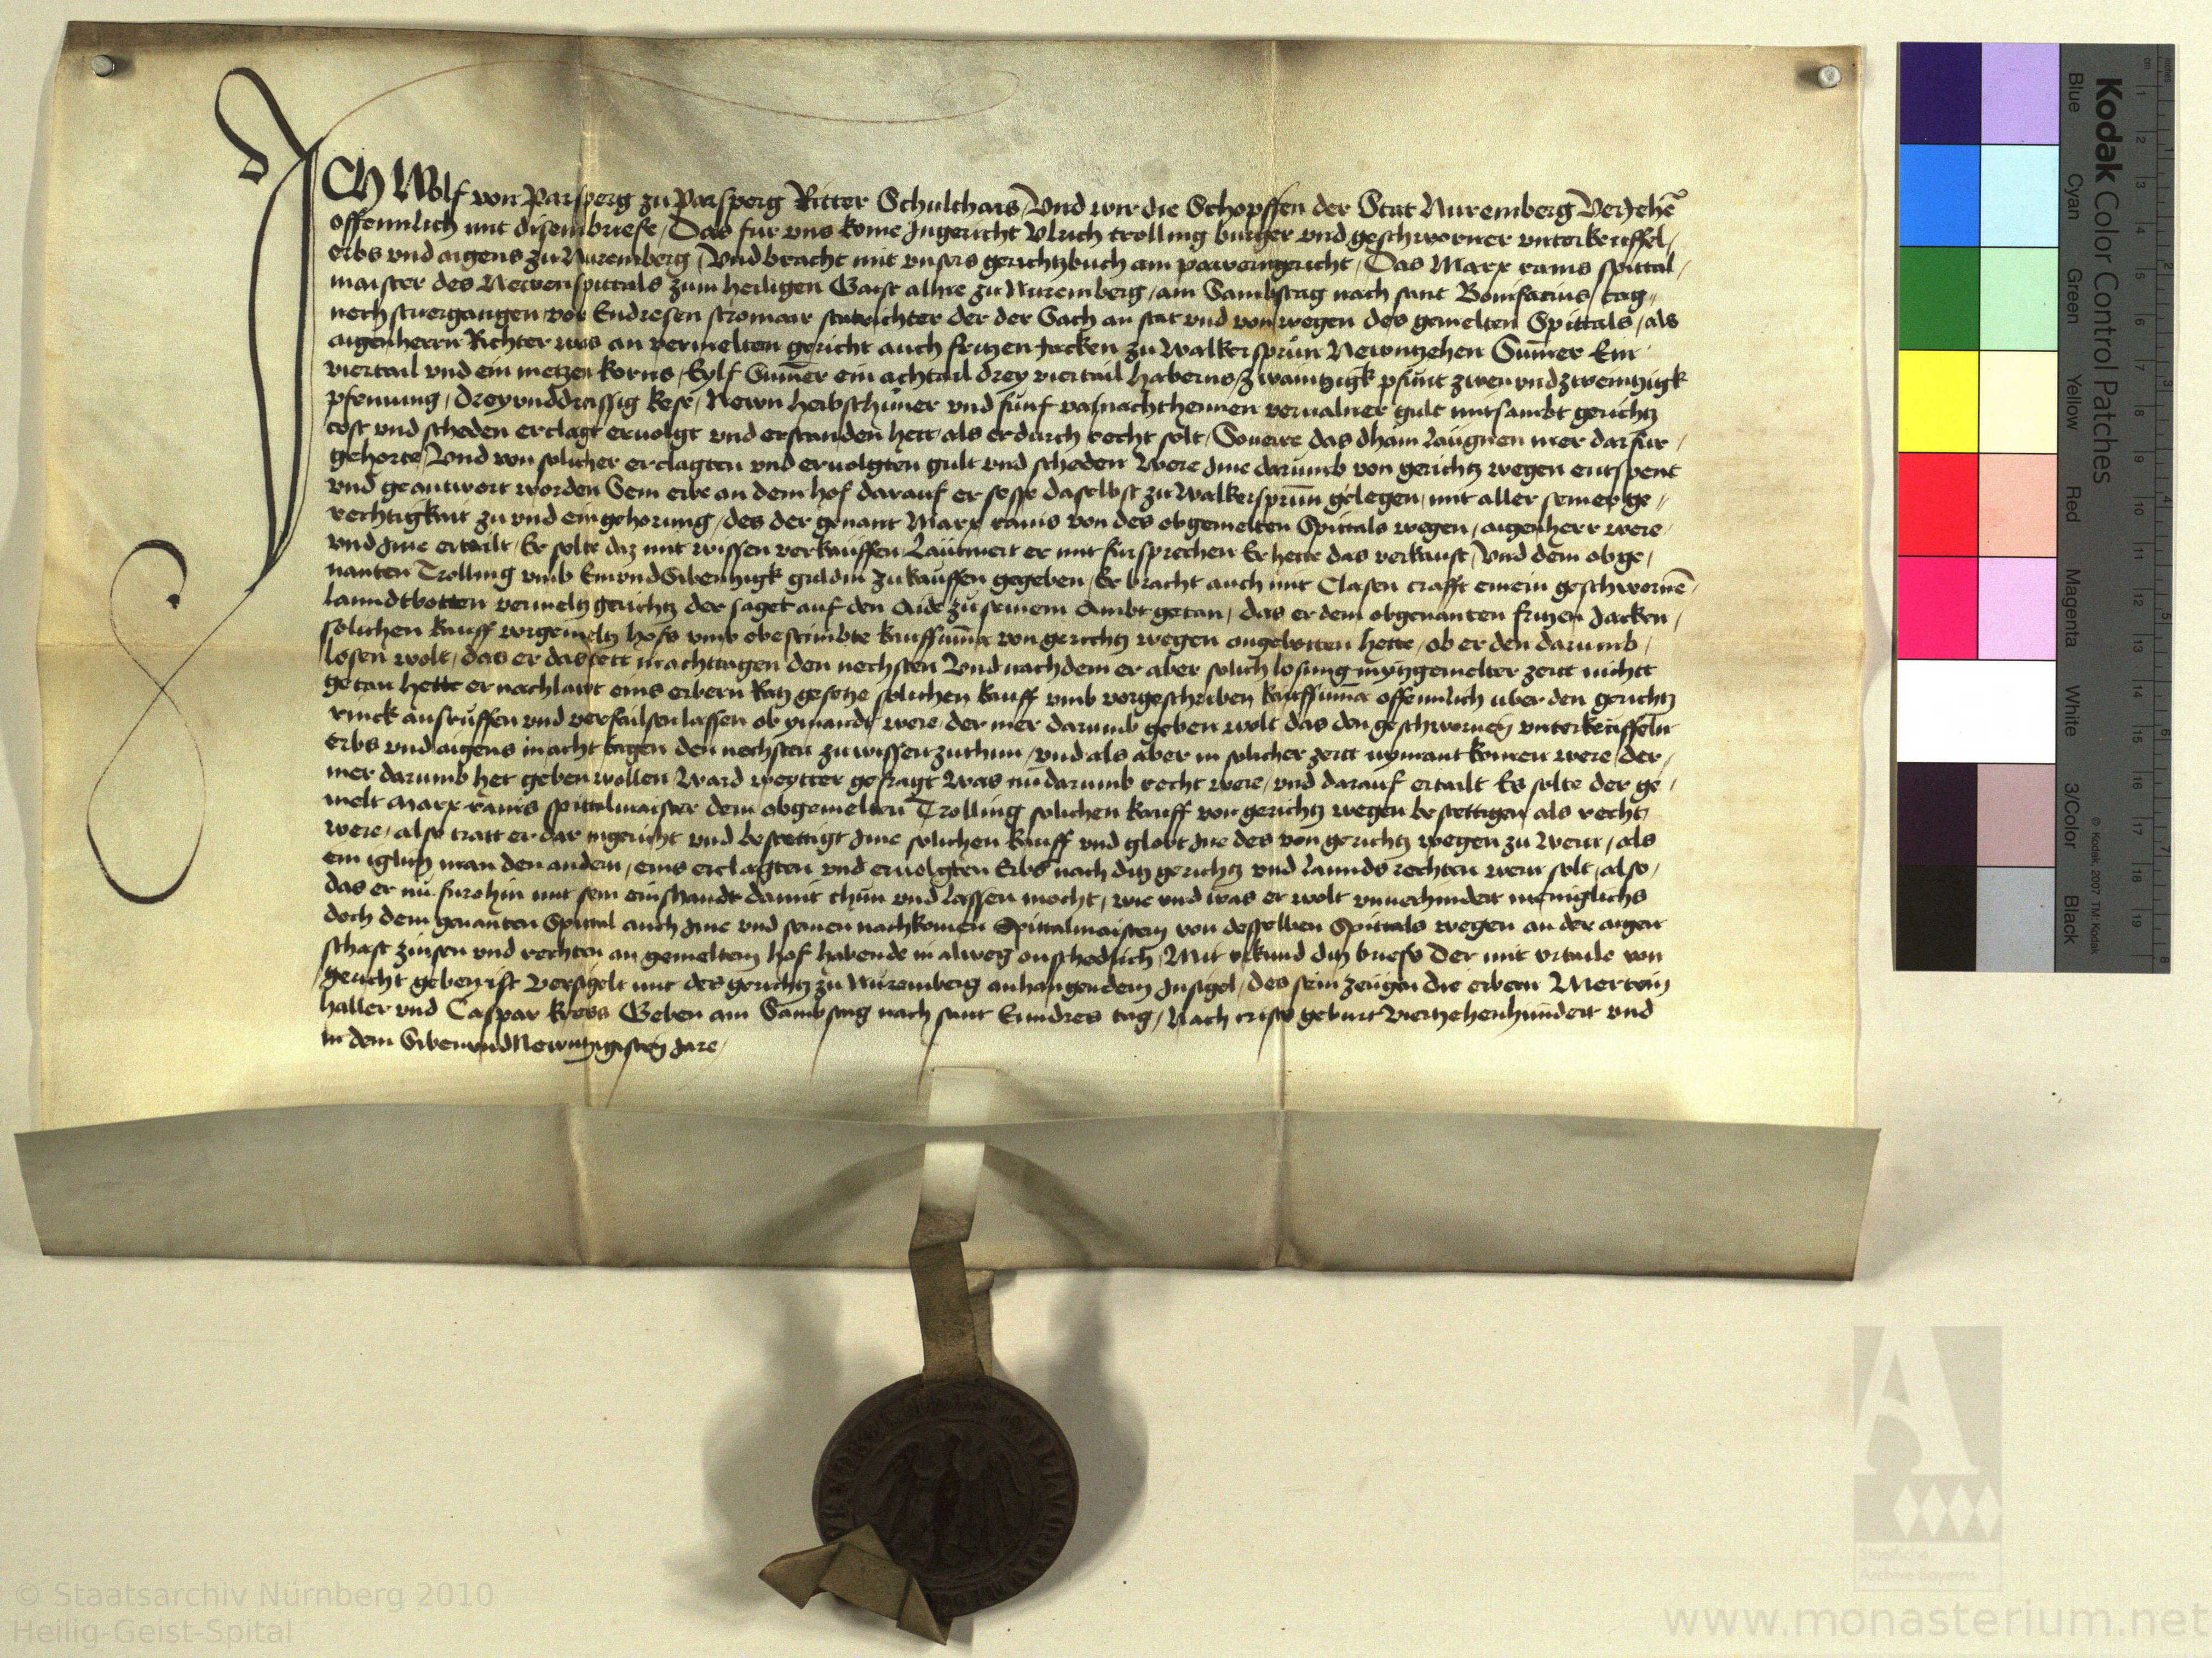 ICH Wolf von Parsperg zu Parsperg Ritter Schulthais Und wir die Schopffen der Stat Nuremberg Veriehē
offennlich mit disem briefe / Das fur uns kome Ingericht Ulrich trolling burger und geschworner unterkeuffel /
erbs und aigens zu Nuremberg / Und bracht mit unsers gerichtzbuch am pawerngericht / Das Marx rams spittal /
maister des Newenspittals zum heiligen Gaist alhie zu Nuremberg / am Sambstag nach sant Bonifacius tag
nechstvergangen vor Endresen stromair statrichter der der Sach an stat und von wegen des gemelten Spittals / als
aigenherrn Richter was an vermelten gericht auch fritzen Jacken zu Walkersprun Newntzehen Sum̄er Ein
viertail und ein metzen korns / Eylf Sum̄er ein achtail drey viertail haberns / zwaintzigk pfunt zwen und zweintzigk
pfenning / dreyunddreissig kese / Newn herbsthuner und funf vasnachthennen veruallner gult mitsambt gerichtz
cost und scheden erclagt eruolgt und erstanden hett als er durch recht solt / Souerre das dhain laugnen mer darfur /
gehorte / Und von solicher erclagten und eruolgten gult und scheden Were Ime darumb von gerichtz wegen entspent
und geantwort worden Sein erbe an dem hof darauf er sesse daselbst zu Walkersprun̄ gelegen / mit aller seiner ge //
rechtigkait zu und eingehorung / des der genant Marx rams von des obgemelten Spittals wegen / aigenherr were
und Ime ertailt / Er solte daz mit wissen verkauffen Lautmert er mit fursprechen Er hette das verkauft / Und dem obge /
nanten Trolling umb EinundSibentzigk guldin zukauffen gegeben / Er bracht auch mit Clasen trafft einem geschwornē
lanndtbotten vermeltz gerichtz der saget auf den Aide zu seinem Ambt getan / das er dem obgenanten fritzen Jacken /
solichen kauff vorgemeltz hofs umb obestimbte kauffsum̄a von gerichtz wegen angebotten hette / ob er den darumb /
losen wolt / das er das tett in achttagen den nechsten Und nachdem er aber solich losung inytzgemelter zeitt nichtt
getan hette er nachlawt eins erbern Ratz gesetze solichen kauff umb vorgeschriben kauffsum̄a offennlich uber den gerichtz
rinck ausruffen und verfailsen lassen ob ymandt were / der mer darumb geben wolt das den geschwornen unterkeuffeln
Erbs und aigens in acht tagen den nechsten zuwissen zuthun / und als aber in solicher zeitt nymant komen were / der /
mer darumb het geben wollen Ward weytter gefragt Was nu darumb recht were / und darauf ertailt Es solte der ge /
melt Marx rams spittalmaister dem obgemelten Trolling solichen kauff von gerichtz wegen bestettigen als recht
were / also tratt er dar ingericht und bestettigt Ime solichen kauff und globt Ine des von gerichtz wegen zu Wern / als
ein iglich man den andern / eins erclagten und eruolgten Erbs nach ditz gerichtz und lannds rechten wern solt / also /
das er nu furohin mit sein einshandt damit thun und lassen mocht / wie und was er wolt unuerhindert meniglichs
doch dem genanten Spittal auch Ime und seinen nachkomen Spittalmaistern von desselben Spittals wegen an der aigen
schaft zinsen und rechten an gemeltem hof habende in alweg onschedlich / Mit urkund ditz briefs Der mit urtaile von
gericht geben ist Versigelt mit des gerichtz zu Nuremberg anhangendem Insigel / des sein zeugen die erbern Mertein
haller und Caspar kress Geben am Sambstag nach sant Enndres tag / Nach cristi geburt Viertzehenhundert und
in dem SibenundNewntzigisten Jare /
Kodak Color Control Patches
Blue Cyan Green Yellow Red Magenta White 3/Color Black
© Kodak, 2007 TM: Kodak
© Staatsarchiv Nürnberg 2010
Heilig-Geist-Spital
Staatliche
Archive Bayerns
www.monasterium.net